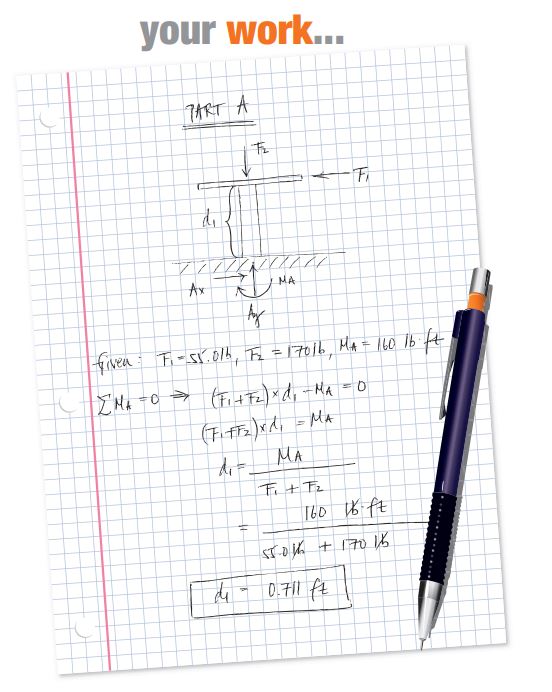 your work...
PART A
F₂
F₁
d₁
Ax
MA
Ay
Given: F₁ = 55.0 lb, F₂ = 170 lb, MA = 160 lb·ft
ΣMA = 0 ⇒ (F₁+F₂)×d₁ - MA = 0
(F₁+F₂)×d₁ = MA
d₁ = MA
F₁ + F₂
= 160 lb·ft
55.0 lb + 170 lb
d₁ = 0.711 ft